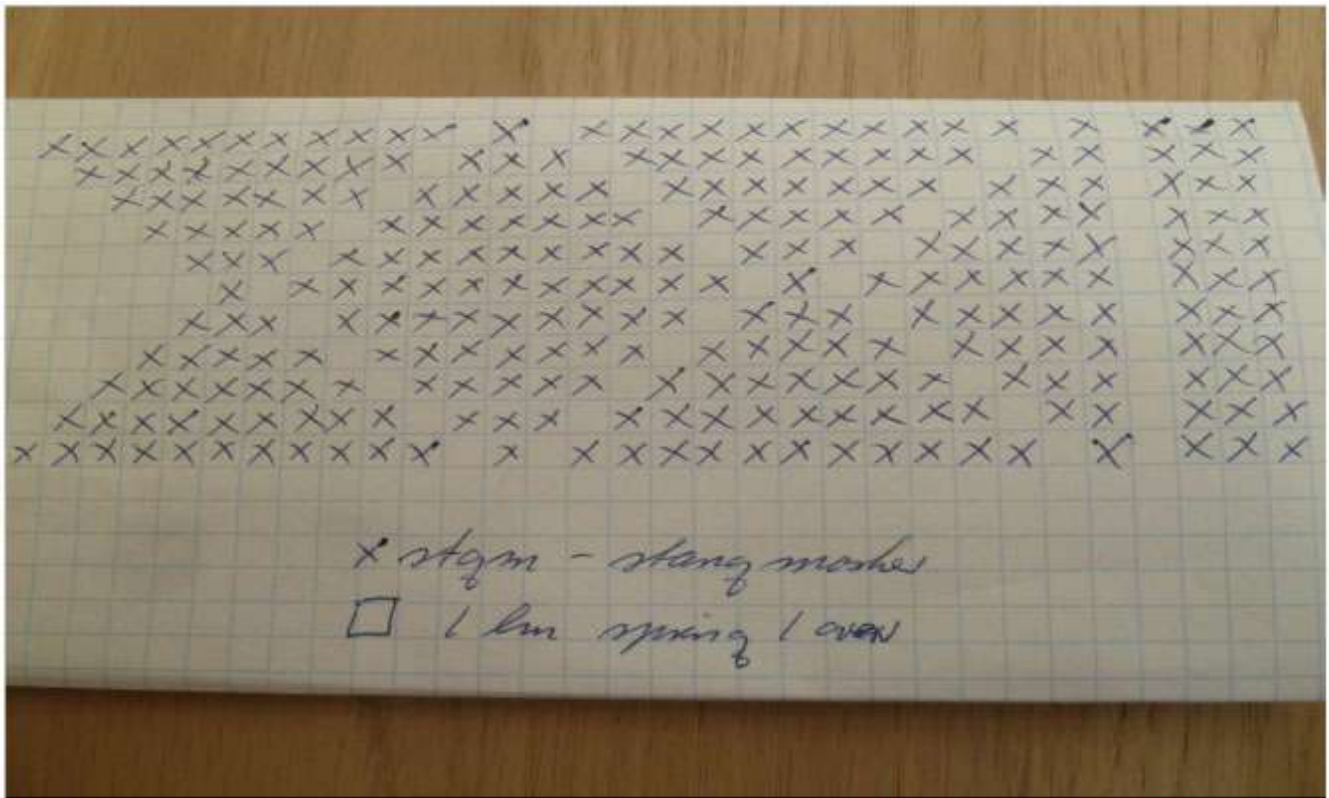 x stgm - stang masker
□ 1 lm spring 1 over